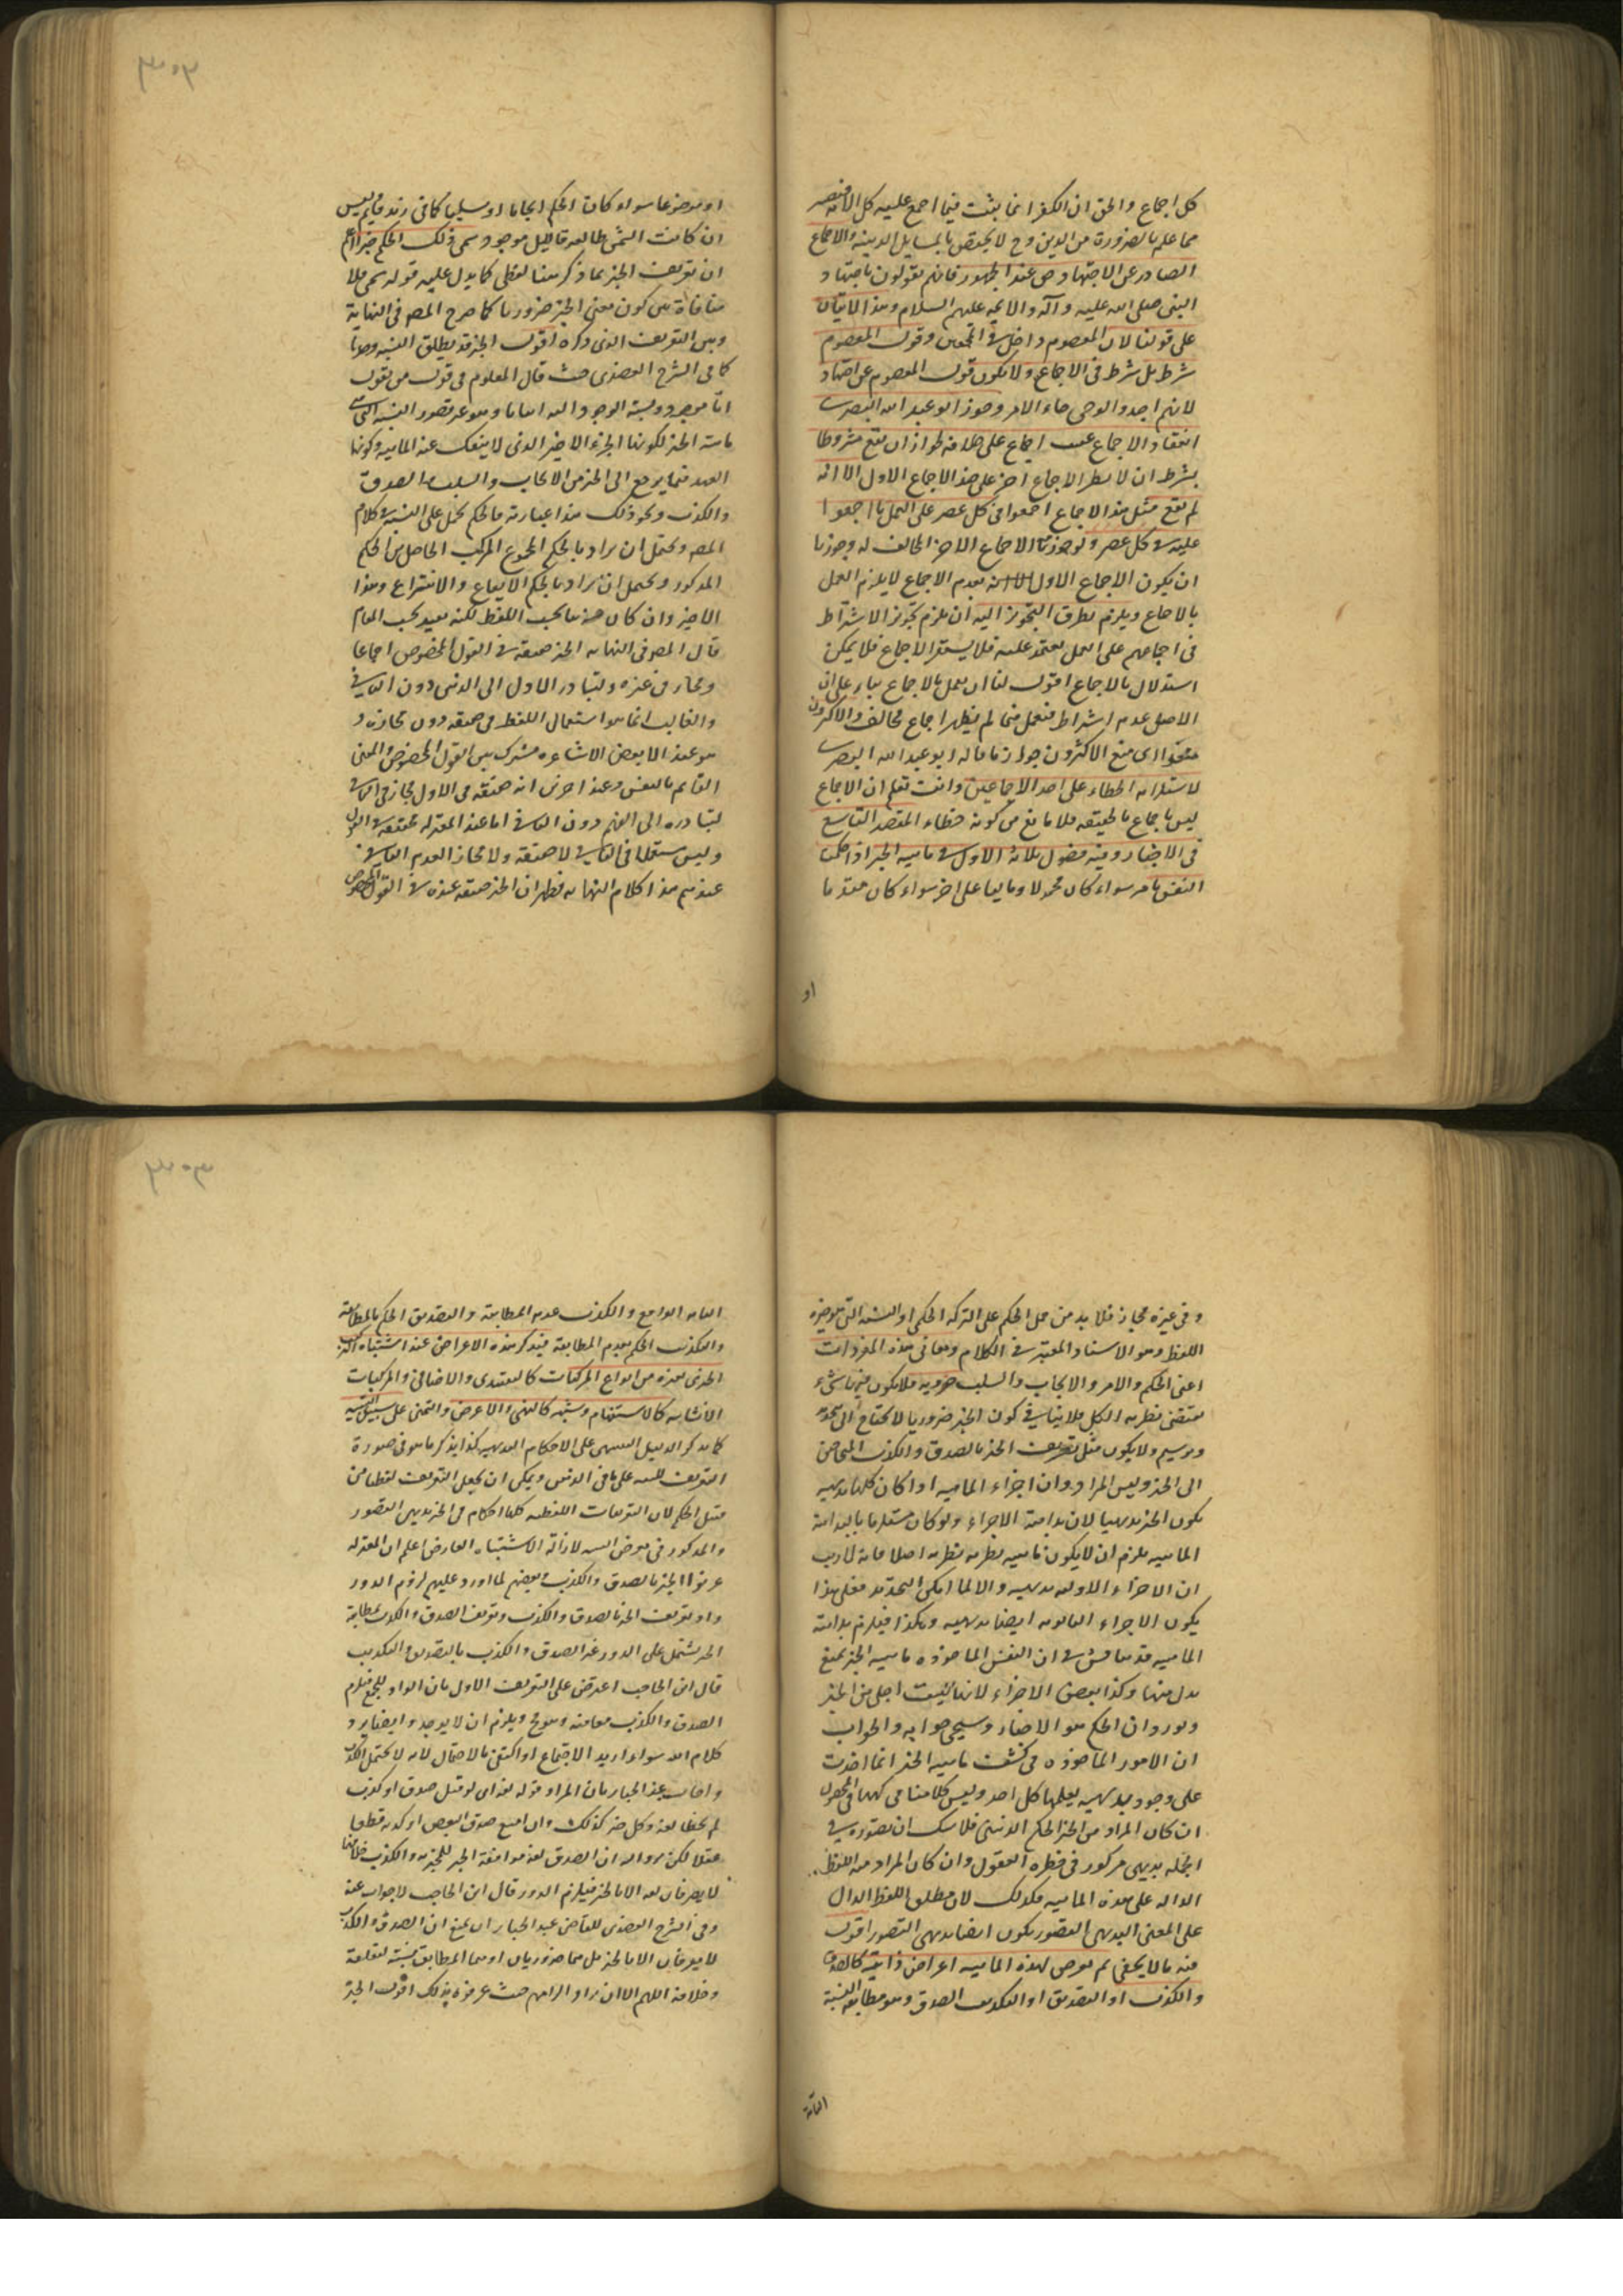 كل اجماع والحق ان الكفر انما يثبت فيما اجمع عليه كل الامة
مما علم بالضرورة من الدين وح لا يختص بالمسايل الدينية والاجماع
الصادر عن الاجتهاد عند الجمهور فانهم يقولون باجتهاد
النبي صلى الله عليه وآله والائمة عليهم السلام وهذا لا يتأتى
على قولنا لان المعصوم داخل في المجمعين وقول المعصوم
شرط بل شرط في الاجماع ولا يكون قول المعصوم عن اجتهاد
لانهم اخذوا لوحى جاء الامر وجوز ابو عبد الله البصرى
انعقاد الاجماع عقيب اجماع على خلافه لجواز ان يقع مشروطا
بشرط ان لا يطرأ لاجماع اخر على هذا الاجماع الاول الا انه
لم يقع مثل هذا الاجماع اجمعوا فى كل عصر على العمل بما اجمعوا
عليه فى كل عصر ولو جوزنا الاجماع الاخر المخالف له وجوزنا
ان يكون الاجماع الاول بعدم الاجماع لا يلزم العمل
بالاجماع ويلزم تطرق التجويز اليه ان يلزم تجويز الاشتراط
فى اجماعهم على العمل يعتمد عليه فلا يستقر الاجماع فلا يمكن
استدلال بالاجماع اقول لنا ان نعمل بالاجماع بناء على ان
الاصل عدم اشتراط فنعمل بما لم يظهر اجماع مخالف والاكثرون
منعوا اى منع الاكثرون جواز ما قاله ابو عبد الله البصرى
لاستلزامه الخطاء على احد الاجماعين وانت تعلم ان الاجماع
ليس باجماع بالحقيقة فلا مانع من كونه خطاء المقصد التاسع
فى الاخبار وفيه فصول ثلاثة الاول فى ماهية الخبر اذا حكمت
النفس بامر سواء كان محمولا او تاليا على اخر سواء كان مقدما
او
او موضوعا سواء كان الحكم ايجابا او سلبيا كما فى زيد قايم ليس
ان كانت الشمس طالعة فالليل موجود سمى ذلك الحكم خبرا اعلم
ان تعريف الخبر بما ذكر هنا لفظى كما يدل عليه قوله سمى فلا
منافاة بين كون معنى الخبر ضروريا كما صرح المصـ فى النهاية
وبين التعريف الذى ذكره اقول الخبر قد يطلق النسبة وحدها
كما فى الشرح العضدى حيث قال المعلوم فى قول من يقول
ماهية الخبر لكونها الجزء الاخير الذى لا ينفك عنه الماهية وكونها
العمدة فيما يرجع الى الخبر من الايجاب والسلب والصدق
والكذب ونحو ذلك هذا عبارته فالحكم يحمل على النسبة فى كلام
المصـ ويحتمل ان يراد بالحكم المجموع المركب الحاصل من الحكم
المذكور ويحتمل ان يراد بالحكم الايقاع والانتزاع وهذا
الاخير وان كان حسنا بحسب اللفظ لكنه بعيد بحسب المقام
قال المصـ فى النهاية الخبر حقيقة فى القول المخصوص اجماعا
ومجاز فى غيره ولتبادر الاول الى الذهن دون الثانى
والغالب انما هو استعمال اللفظ فى حقيقته دون مجازه و
هو عند الا بعض الاشاعرة مشترك بين القول المخصوص والمعنى
القايم بالنفس وعند اخرين انه حقيقة فى الاول مجاز فى الثانى
لتبادره الى الفهم دون الثانى اما عند المعتزلة فحقيقة فى الاول
وليس مستعملا فى الثانى لا حقيقة ولا مجازا لعدم الثانى
عندهم هذا كلام النهاية فظهر ان الخبر حقيقة عنده فى القول المخصوص
وفى غيره مجاز فلا بد من حمل الحكم على المركب الحكمى او النسبة التى هو جزء
اللفظ وهو الاسناد المعتبر فى الكلام ومعانى هذه المفردات
اعنى الحكم والامر والايجاب والسلب ضرورية فلا يكون فيها شىء
يقتضى نظرية الكل فلا ينافى كون الخبر ضروريا لا يحتاج الى تحديد
وترسيم ولا يكون مثل تعريف الخبر بالصدق والكذب المحتاجين
الى الخبر وليس المراد وان اجزاء الماهية اذا كان كلها بديهية
يكون الخبر بديهيا لان بداهة الاجزاء ولو كان مستلزما لبداهة
الماهية يلزم ان لا يكون ماهية نظرية نظرية اصلا فانه لا ريب
ان الاجزاء الاولية بديهية والا لما امكن التحديد فعلى هذا
يكون الاجزاء الثانوية ايضا بديهية وهكذا فيلزم بداهة
الماهية قد يناقش فى ان النفس الماخوذه ماهية الخبر يمنع
بدل منها وكذا بعض الاجزاء لانها ليست اجلى من الخبر
ويورد ان الحكم هو الاخبار وسيجىء جوابه والجواب
ان الامور الماخوذه فى كشف ماهية الخبر انما اخذت
على وجود بديهية يعلمها كل احد وليس كلامنا فى كنهها فى المحصول
ان كان المراد من الخبر الحكم الذهنى فلا شك ان تصوره فى
الجملة بديهى مركوز فى فطرة العقول وان كان المراد منه اللفظ
الدالة على هذه الماهية فكذلك لان مطلق اللفظ الدال
على المعنى البديهى التصور يكون ايضا بديهى التصور اقول
فيه ما لا يخفى ثم يعرض لهذه الماهية اعراض ذاتية كالصدق
والكذب او التصديق او التكذيب الصدق وهو مطابقة النسبة
الثابتة
الثابتة الواقع والكذب عدم المطابقة والتصديق الحكم بالمطابقة
والتكذيب الحكم بعدم المطابقة فيذكر هذه الاعراض عند اشتباه
الخبرى بغيره من انواع المركبات كالتقييدى والاضافى والمركبات
الانشائية كالاستفهام وشبهه كالنهى والامر والعرض والتمنى على سبيل التنبيه
كما يذكر الدليل التنبيهى على الاحكام البديهية كذا يذكر ما هو فى صورة
التعريف للتنبيه على ما فى الذهن ويمكن ان يجعل التعريف لفظيا من
قبيل الحكم لان التعريفات اللفظية كلها احكام فى الخبر بديهى التصور
والمذكور فى معرض التنبيه لازالة الاشتباه العارض اعلم ان المعتزلة
عرفوا الخبر بالصدق والكذب وبعضهم لما اورد عليهم لزوم الدور
واو تعريف الخبر بالصدق والكذب وتعريف الصدق والكذب بمطابقة
الخبر يشتمل على الدور غير الصدق والكذب بالتصديق والتكذيب
قال ابن الحاجب اعترض على التعريف الاول بان الواو للجمع فيلزم
الصدق والكذب معا منه وهو مح ويلزم ان لا يوجد وايضا يرد
كلام الله سواء اريد الاجتماع او اكتفى بالاحتمال لانه لا يحتمل الكذب
واجاب عبد الجبار بان المراد قوله لغة اى لو قيل صدق او كذب
لم يخطا لغة وكل خبر كذلك وان امتنع صدق البعض او كذبه قطعا
عقلا لكن يرد ان الصدق لغة موافقة الخبر للمخبر به والكذب خلافها
لا يعرفان لغة الا بالخبر فيلزم الدور قال ابن الحاجب لا جواب عنه
وفى الشرح العضدى للقاضى عبد الجبار ان يمنع ان الصدق والكذب
لا يعرفان الا بالخبر بل هما ضروريان او هما المطابق نسبة لمتعلقه
وخلافه اللهم الا ان يراد الزامهم حيث عرفوه بذلك اقول الخبر